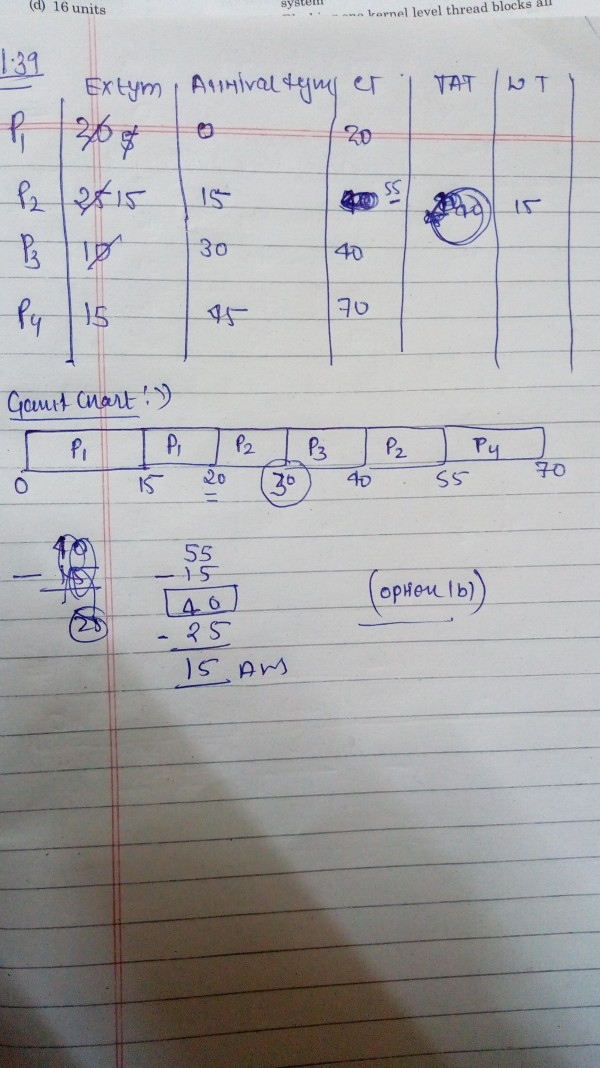 (d) 16 units
system
kernel level thread blocks all
1.39
Extym Arrival tym CT TAT WT
P1 20 5 0 20
P2 25 15 15 55 15
P3 10 30 40
P4 15 45 70
Gantt Chart :)
P1 P1 P2 P3 P2 P4
0 15 20 30 40 55 70
40 55
- 15 - 15
40
20 - 25
15 Ans
(option (b))